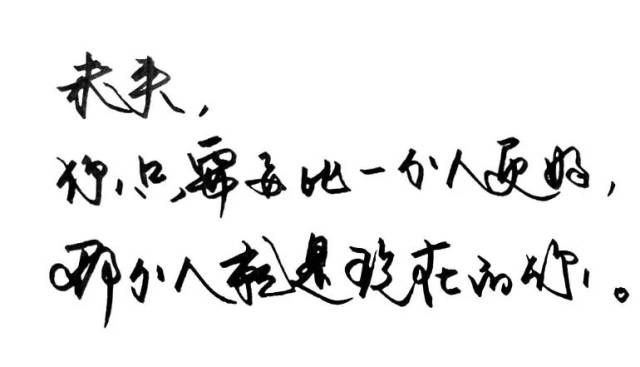 未来,
你只需要比一个人更好,
那个人就是现在的你。